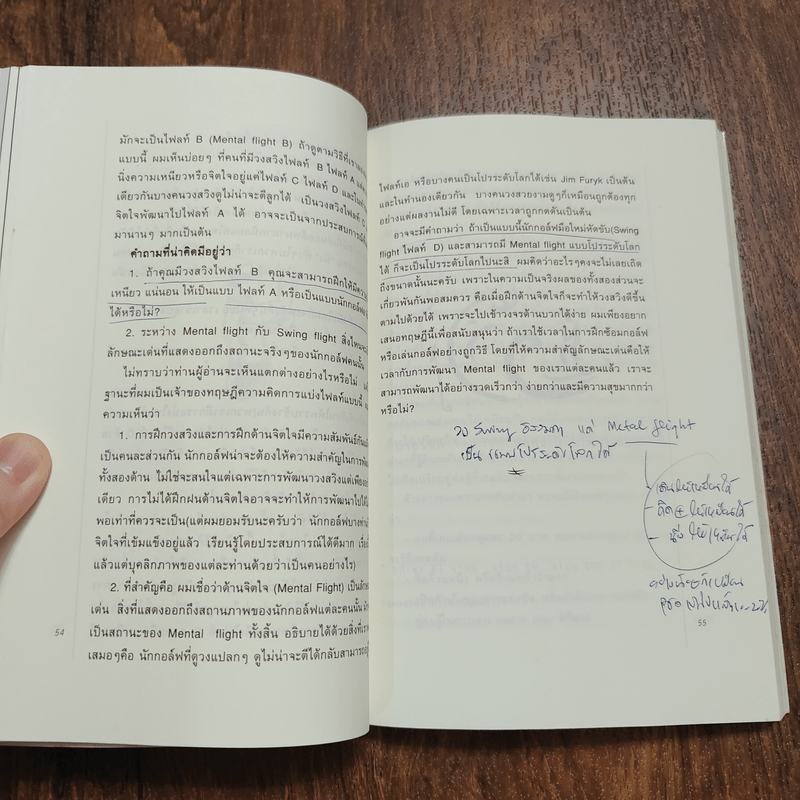 มักจะเป็นไฟลท์ B (Mental flight B) ถ้าดูตามวิธีที่เรา
แบบนี้ ผมเห็นบ่อยๆ ที่คนที่มีวงสวิงไฟลท์ B ไฟลท์ A แต่
นิ่งความเหนียวหรือจิตใจอยู่แค่ไฟลท์ C ไฟลท์ D และใน
เดียวกันบางคนวงสวิงดูไม่น่าจะตีลูกได้ เป็นวงสวิงไฟลท์
จิตใจพัฒนาไปไฟลท์ A ได้ อาจจะเป็นจากประสบการณ์
มานานๆ มากเป็นต้น
คำถามที่น่าคิดมีอยู่ว่า
1. ถ้าคุณมีวงสวิงไฟลท์ B คุณจะสามารถฝึกให้มี
เหนียว แน่นอน ให้เป็นแบบ ไฟลท์ A หรือเป็นแบบนักกอล์ฟ
ได้หรือไม่?
2. ระหว่าง Mental flight กับ Swing flight สิ่งไหน
ลักษณะเด่นที่แสดงออกถึงสถานะจริงๆของนักกอล์ฟคนนั้น
ไม่ทราบว่าท่านผู้อ่านจะเห็นแตกต่างอย่างไรหรือไม่
ฐานะที่ผมเป็นเจ้าของทฤษฎีความคิดการแบ่งไฟลท์แบบนี้
ความเห็นว่า
1. การฝึกวงสวิงและการฝึกด้านจิตใจมีความสัมพันธ์กัน
เป็นคนละส่วนกัน นักกอล์ฟน่าจะต้องให้ความสำคัญในการ
ทั้งสองด้าน ไม่ใช่จะสนใจแต่เฉพาะการพัฒนาวงสวิงแต่เพียง
เดียว การไม่ได้ฝึกฝนด้านจิตใจอาจจะทำให้การพัฒนาไป
พอเท่าที่ควรจะเป็น(แต่ผมยอมรับนะครับว่า นักกอล์ฟบาง
จิตใจที่เข้มแข็งอยู่แล้ว เรียนรู้โดยประสบการณ์ได้ดีมาก
แล้วแต่บุคลิกภาพของแต่ละท่านด้วยว่าเป็นคนอย่างไร)
2. ที่สำคัญคือ ผมเชื่อว่าด้านจิตใจ (Mental Flight) เป็น
เด่น สิ่งที่แสดงออกถึงสถานภาพของนักกอล์ฟแต่ละคนนั้น
เป็นสถานะของ Mental flight ทั้งสิ้น อธิบายได้ด้วยสิ่งที่เรา
เสมอๆคือ นักกอล์ฟที่ดูวงแปลกๆ ดูไม่น่าจะตีได้กลับสามารถ
54
ไฟลท์เอ หรือบางคนเป็นโปรระดับโลกได้เช่น Jim Furyk เป็นต้น
และในทำนองเดียวกัน บางคนวงสวยงามดูๆก็เหมือนถูกต้องทุก
อย่างแต่ผลงานไม่ดี โดยเฉพาะเวลาถูกกดดันเป็นต้น
อาจจะมีคำถามว่า ถ้าเป็นแบบนี้นักกอล์ฟมือใหม่หัดขับ(Swing
flight ไฟลท์ D) และสามารถมี Mental flight แบบโปรระดับโลก
ได้ ก็จะเป็นโปรระดับโลกไปนะสิ ผมคิดว่าอะไรๆคงจะไม่เลยเถิด
ถึงขนาดนั้นนะครับ เพราะในความเป็นจริงผลของทั้งสองส่วนจะ
เกี่ยวพันกันพอสมควร คือเมื่อฝึกด้านจิตใจก็จะทำให้วงสวิงดีขึ้น
ตามไปด้วยได้ เพราะจะไปเข้าวงจรด้านบวกได้ง่าย ผมเพียงอยาก
เสนอทฤษฎีนี้เพื่อสนับสนุนว่า ถ้าเราใช้เวลาในการฝึกซ้อมกอล์ฟ
หรือเล่นกอล์ฟอย่างถูกวิธี โดยที่ให้ความสำคัญลักษณะเด่นคือให้
เวลากับการพัฒนา Mental flight ของเราแต่ละคนแล้ว เราจะ
สามารถพัฒนาได้อย่างรวดเร็วกว่า ง่ายกว่าและมีความสุขมากกว่า
หรือไม่?
วง Swing ธรรมดา แต่ Mental flight
เป็น แบบโปรระดับโลกได้
ให้เหมือนได้
คิด + ให้เหมือนได้
นิ่ง ให้เหมือนได้
55